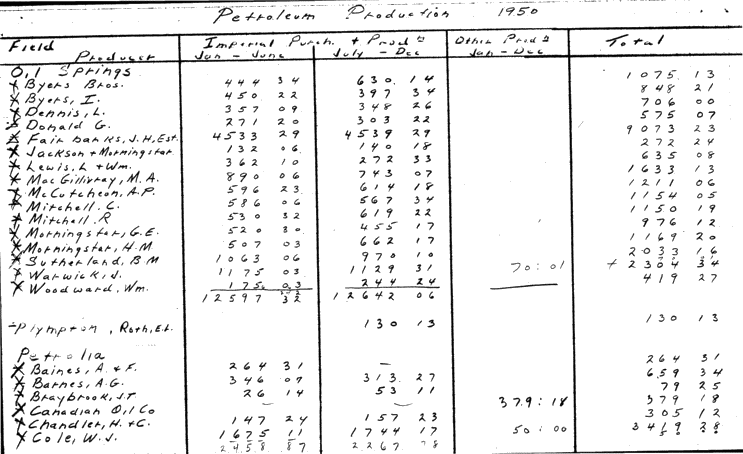 Petroleum Production 1950
Field Producer Imperial Purch. + Prod'n Jan - June July - Dec Other Prod'n Jan - Dec Total
Oil Springs
x Byers Bros. 444 34 630 14 1075 13
x Byers, I. 450 22 397 34 848 21
x Dennis, L. 357 09 348 26 706 00
x Donald G. 271 20 303 22 575 07
x Fairbanks, J.H, Est. 4533 29 4539 29 9073 23
x Jackson + Morningstar 132 06 140 18 272 24
x Lewis, L + Wm. 362 10 272 33 635 08
x MacGillivray, M.A. 890 06 743 07 1633 13
x McCutcheon, A.P. 596 23 614 18 1211 06
x Mitchell. C. 586 06 567 34 1154 05
x Mitchell. R 530 32 619 22 1150 19
x Morningstar, G.E. 520 30 455 17 976 12
x Morningstar, H.M 507 03 662 17 1169 20
x Sutherland, B M 1063 06 970 10 2033 16
+ Warwick, J. 1175 03 1129 31 70:01 + 2304 34
x Woodward, Wm. 175 03 244 24 419 27
12597 32 12642 06
Plympton, Roth, Ed. 130 13 130 13
Petrolia
x Baines, A. + F. 264 31 — 264 31
x Barnes, A.G. 346 07 313 27 659 34
x Braybrook, J.T 26 14 53 11 79 25
x Canadian Oil Co — — 379:18 379 18
x Chandler, H. + C. 147 24 157 23 305 12
x Cole, W.J. 1675 11 1744 17 50:00 3419 28
2458 87 2267 78